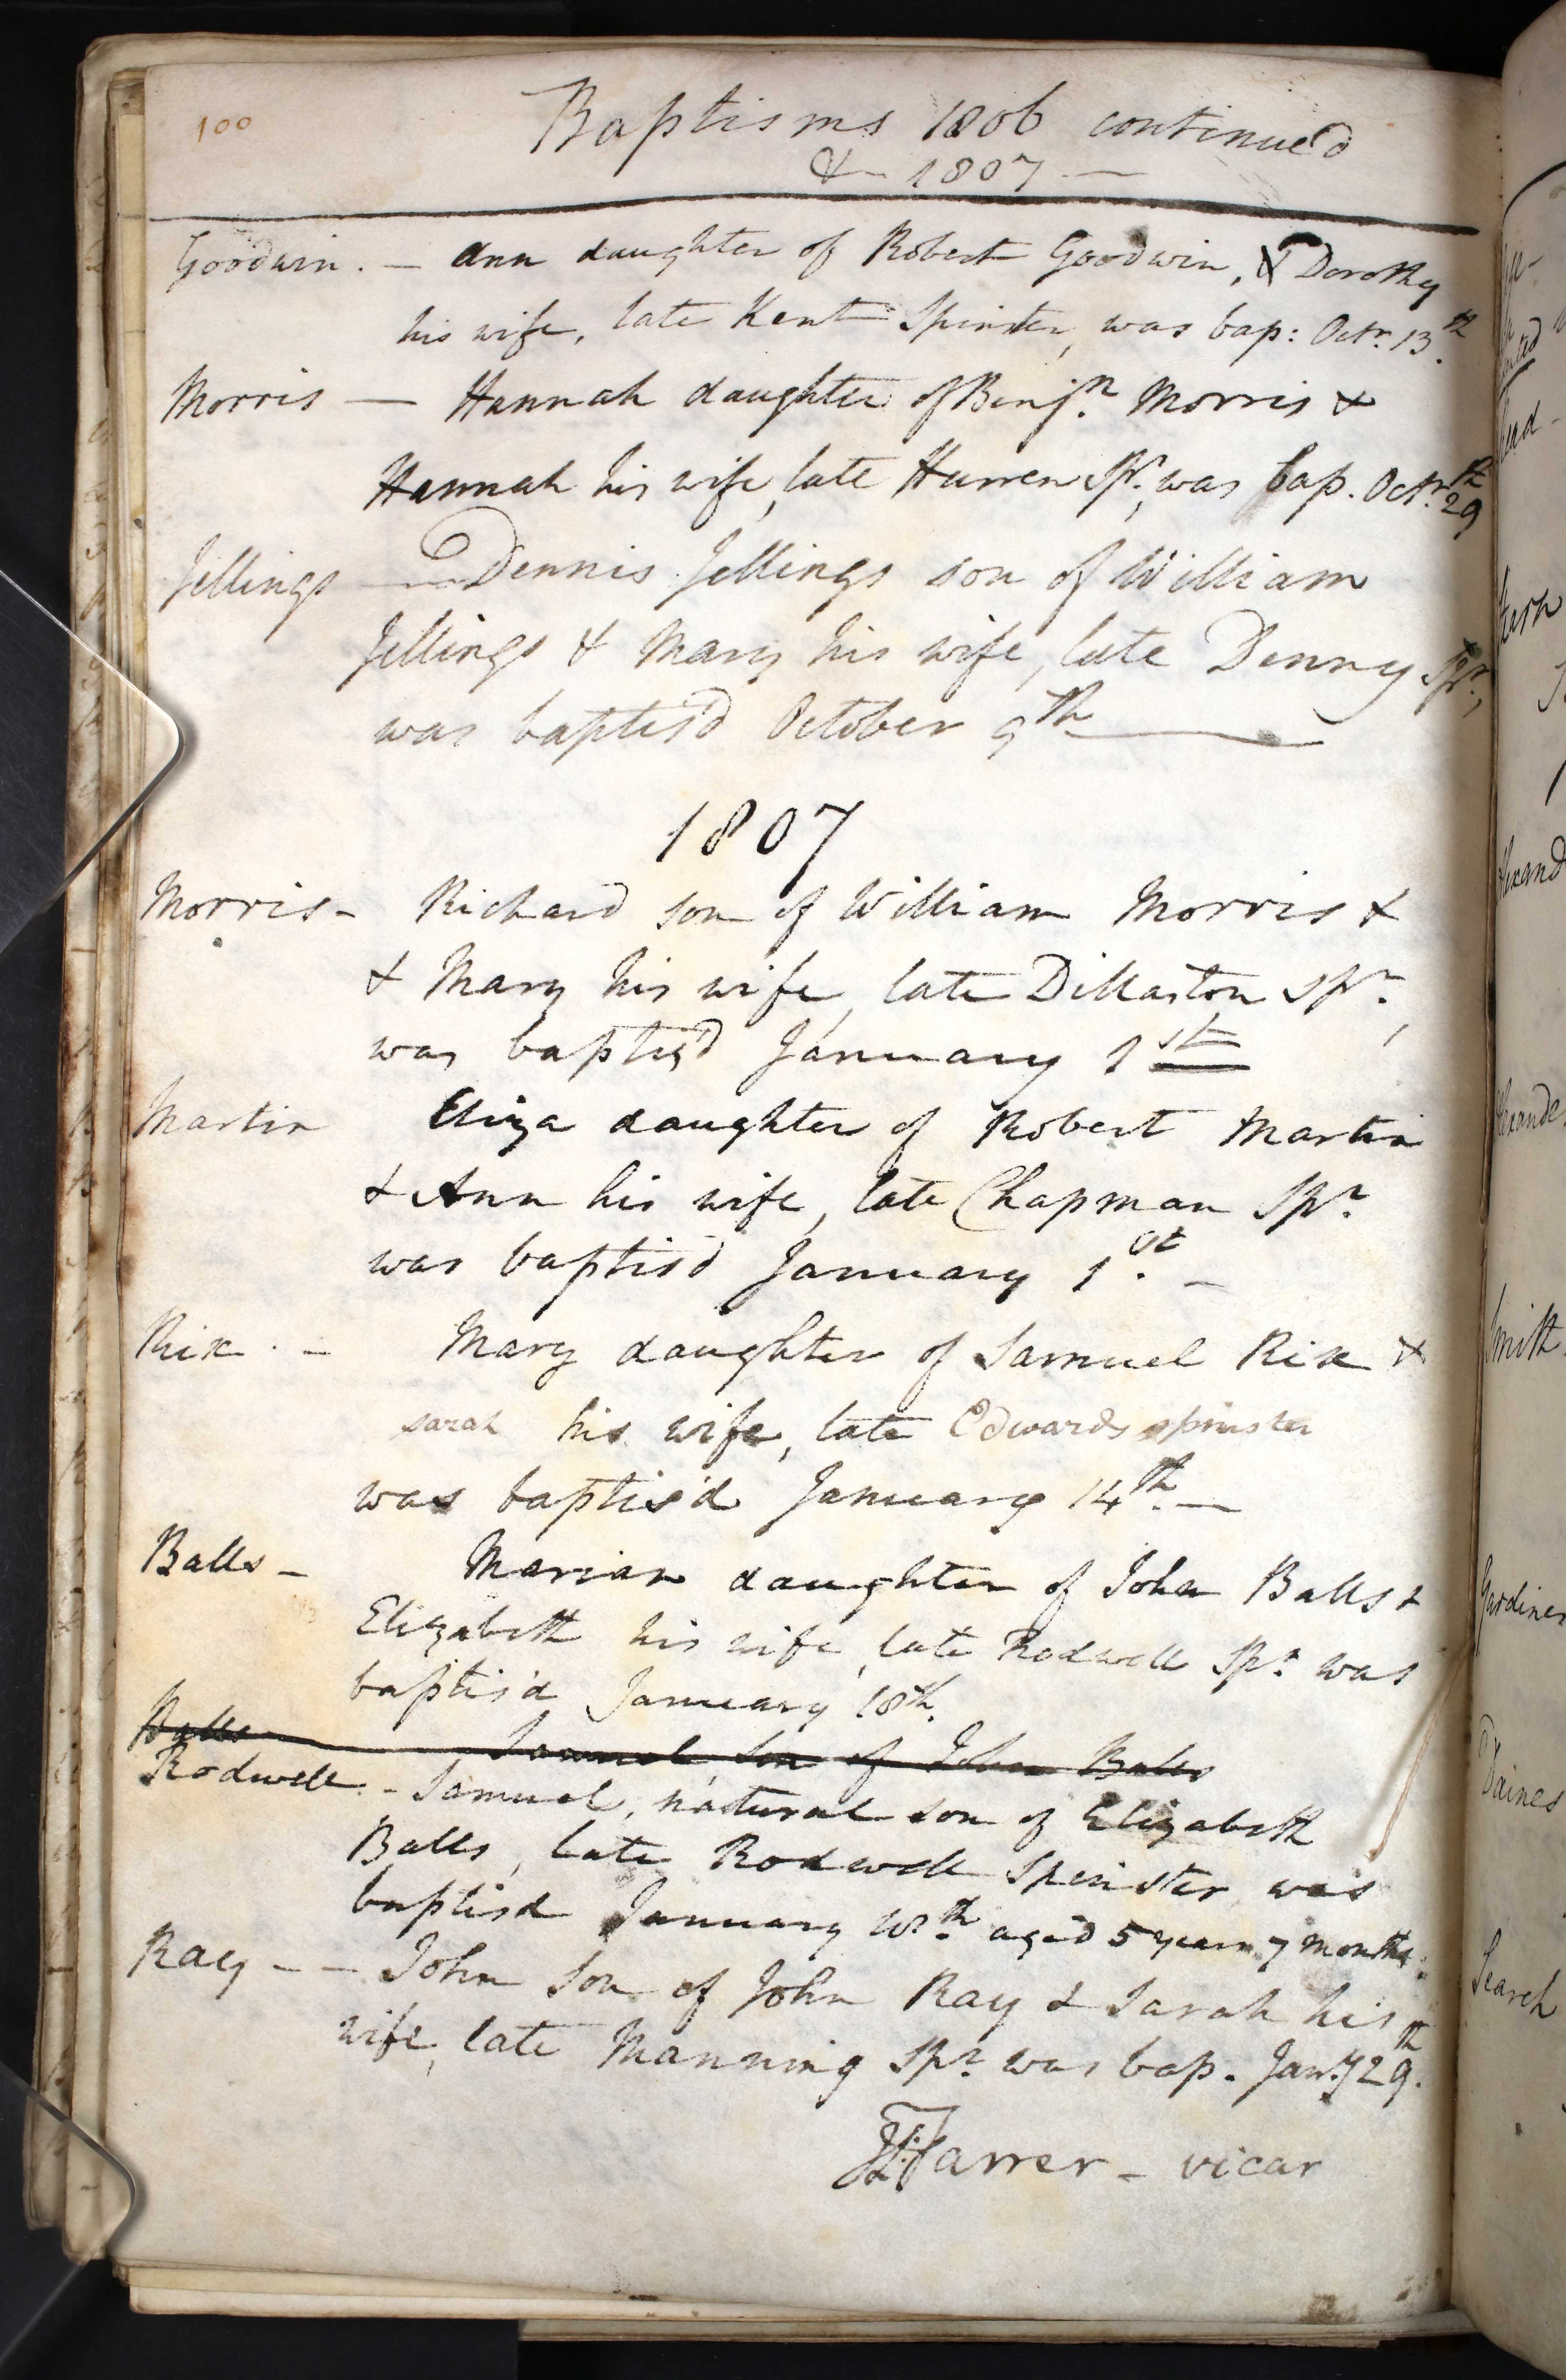 100
Baptisms 1806 continued
& - 1807 -
Goodwin. - Ann daughter of Robert Goodwin, & Dorothy
his wife, late Kent Spinster, was bap: Octr. 13th.
Morris - Hannah daughter of Benjn. Morris &
Hannah his wife, late Hurren Spr., was bap. Octr. 29th
Jellings - Dennis Jellings son of William
Jellings & Mary his wife, late Denny Spr.,
was baptis'd October 9th
1807
Morris - Richard son of William Morris &
& Mary his wife, late Dillaston Spr.,
was baptis'd January 1st
Martin Eliza daughter of Robert Martin
& Ann his wife, late Chapman Spr.
was baptis'd January 1st. -
Rix . - Mary daughter of Samuel Rix &
sarah his wife, late Edwards spinster
was baptis'd January 14th. -
Balls - Marian daughter of John Balls &
Elizabeth his wife, late Rodwell Spr. was
baptis'd January 18th.
Balls Samuel son of John Balls
Rodwell - Samuel, natural son of Elizabeth
Balls, late Rodwell Spinster was
baptisd January th. aged 5 years 7 months.
Ray - - John son of John Ray & Sarah his
wife, late Manning Spr. was bap. Jany. 29th.
Farrer - vicar
Smith
Gardiner
Daines
Search